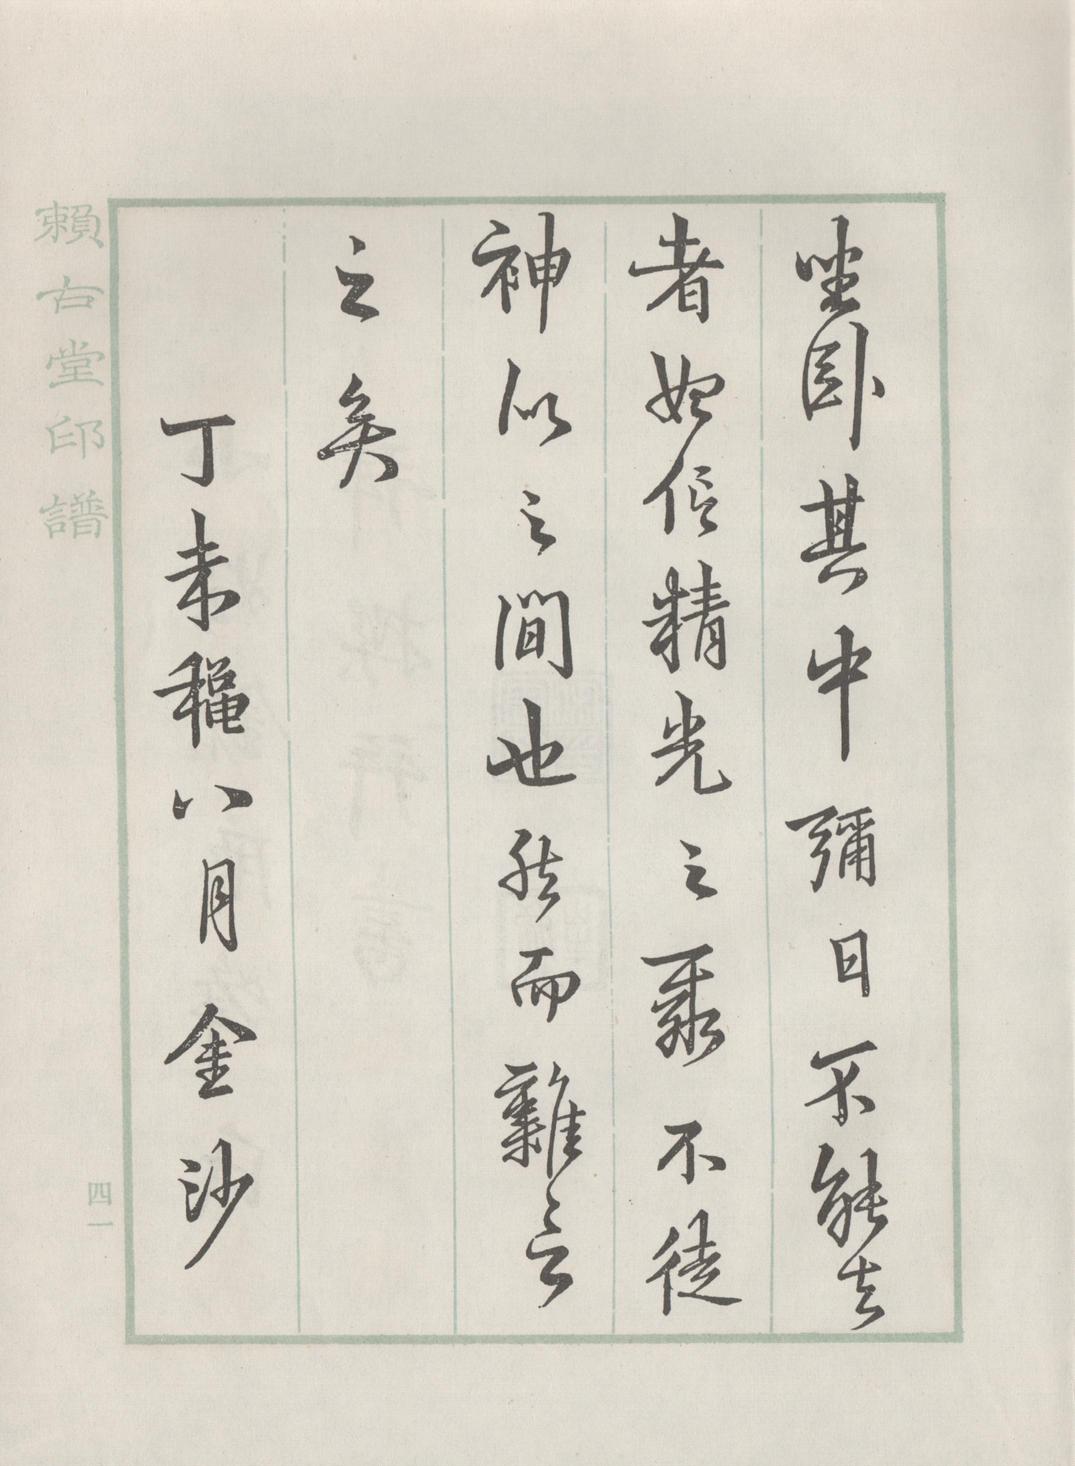 坐臥其中彌日不能去
者始信精光之聚不徒
神似之間也然而難言
之矣
丁未龝八月金沙
賴古堂印譜
四一